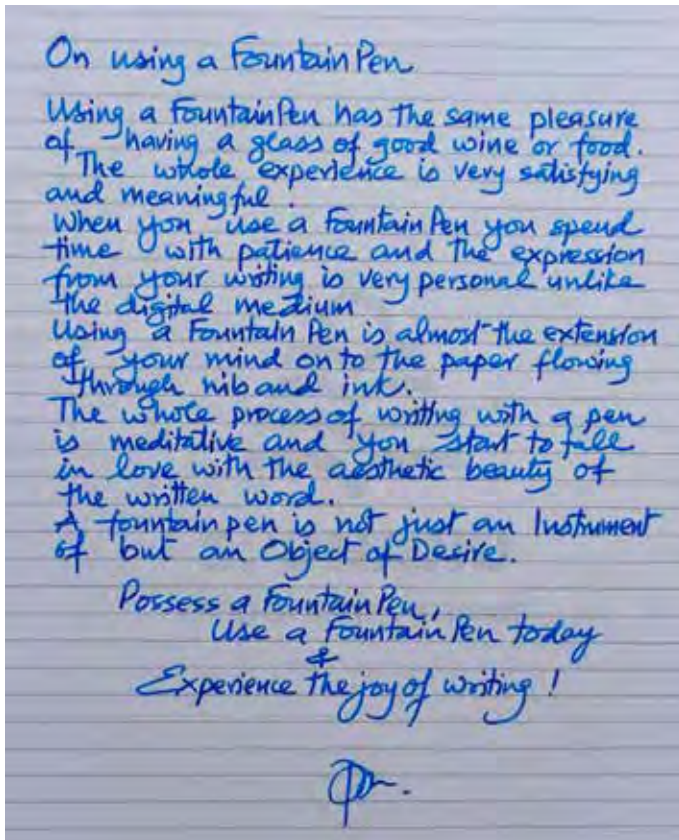 On using a Fountain Pen
Using a Fountain Pen has the same pleasure
of having a glass of good wine or food.
The whole experience is very satisfying
and meaningful.
When you use a Fountain Pen you spend
time with patience and the expression
from your writing is very personal unlike
the digital medium
Using a Fountain Pen is almost the extension
of your mind on to the paper flowing
through nib and ink.
The whole process of writing with a pen
is meditative and you start to fall
in love with the aesthetic beauty of
the written word.
A fountain pen is not just an Instrument
of but an Object of Desire.
Possess a Fountain Pen,
Use a Fountain Pen today
&
Experience the joy of writing!